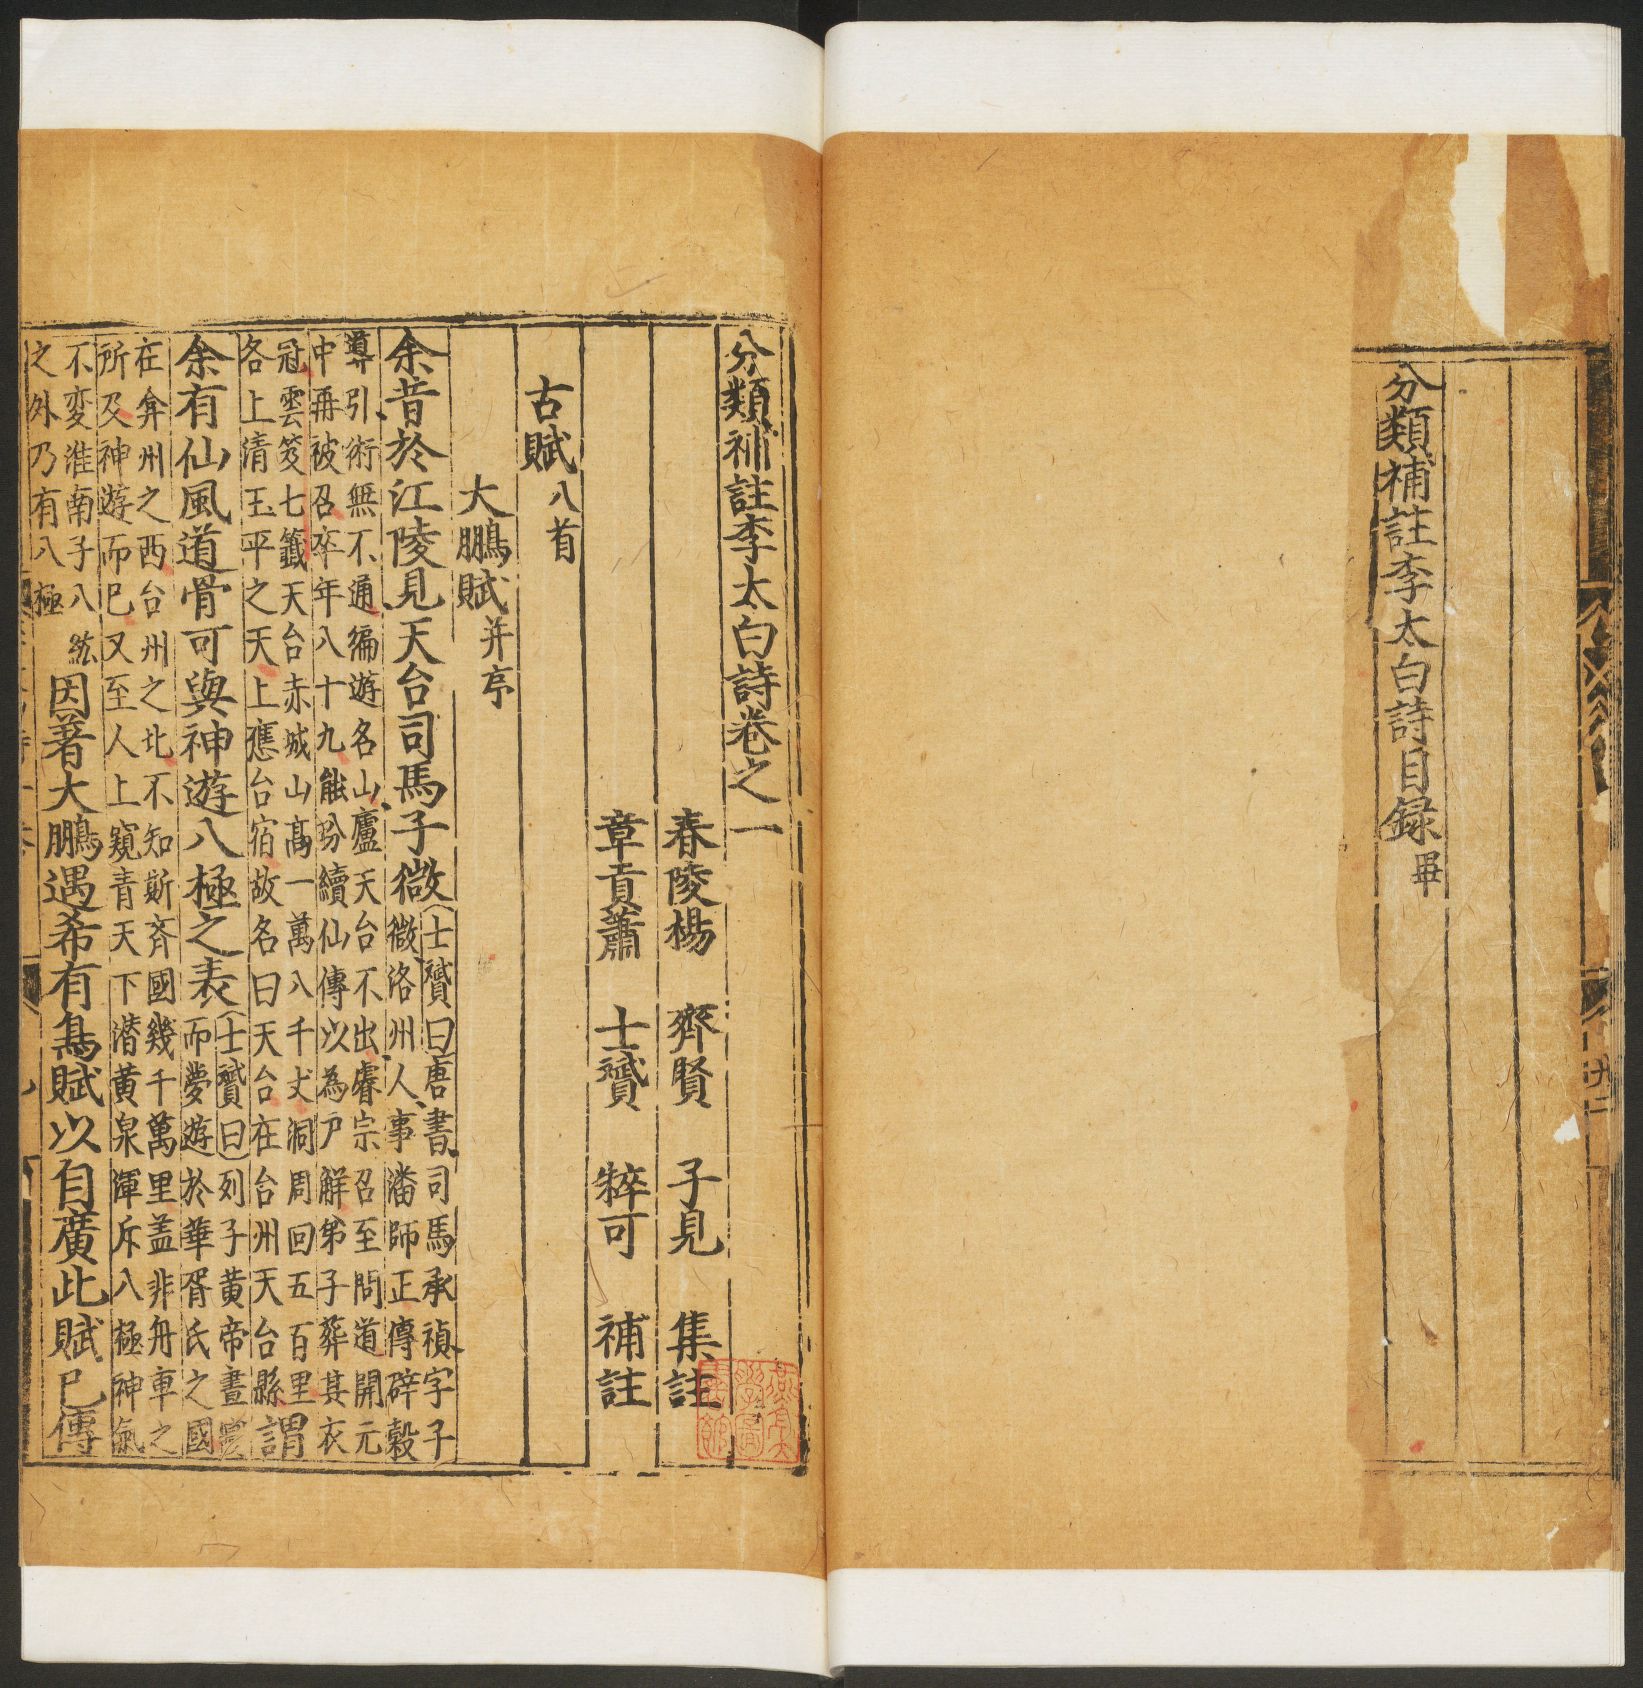 分類補註李太白詩目録 畢
分類補註李太白詩卷之一
舂陵楊 齊賢 子見 集註
章貢蕭 士贇 粹可 補註
古賦 八首
大鵬賦 并序
余昔於江陵見天台司馬子微
士贇曰唐書司馬承禎字子
微洛州人事潘師正傳辟穀
導引術無不通徧遊名山廬天台不出睿宗召至問道開元
中再被召卒年八十九䏻玢續仙傳以為尸解弟子葬其衣
冠雲笈七籤天台赤城山高一萬八千丈洞周回五百里
各上清玉平之天上應台宿故名曰天台在台州天台縣
謂
余有仙風道骨可與神遊八極之表
士贇曰列子黃帝晝寢
而夢遊於華胥氏之國
在弇州之西台州之北不知斯齊國幾千萬里盖非舟車之
所及神遊而已又至人上窺青天下潜黃泉渾斥八極神氣
不変淮南子八紘
之外乃有八極
因著大鵬遇希有鳥賦以自廣此賦已傳